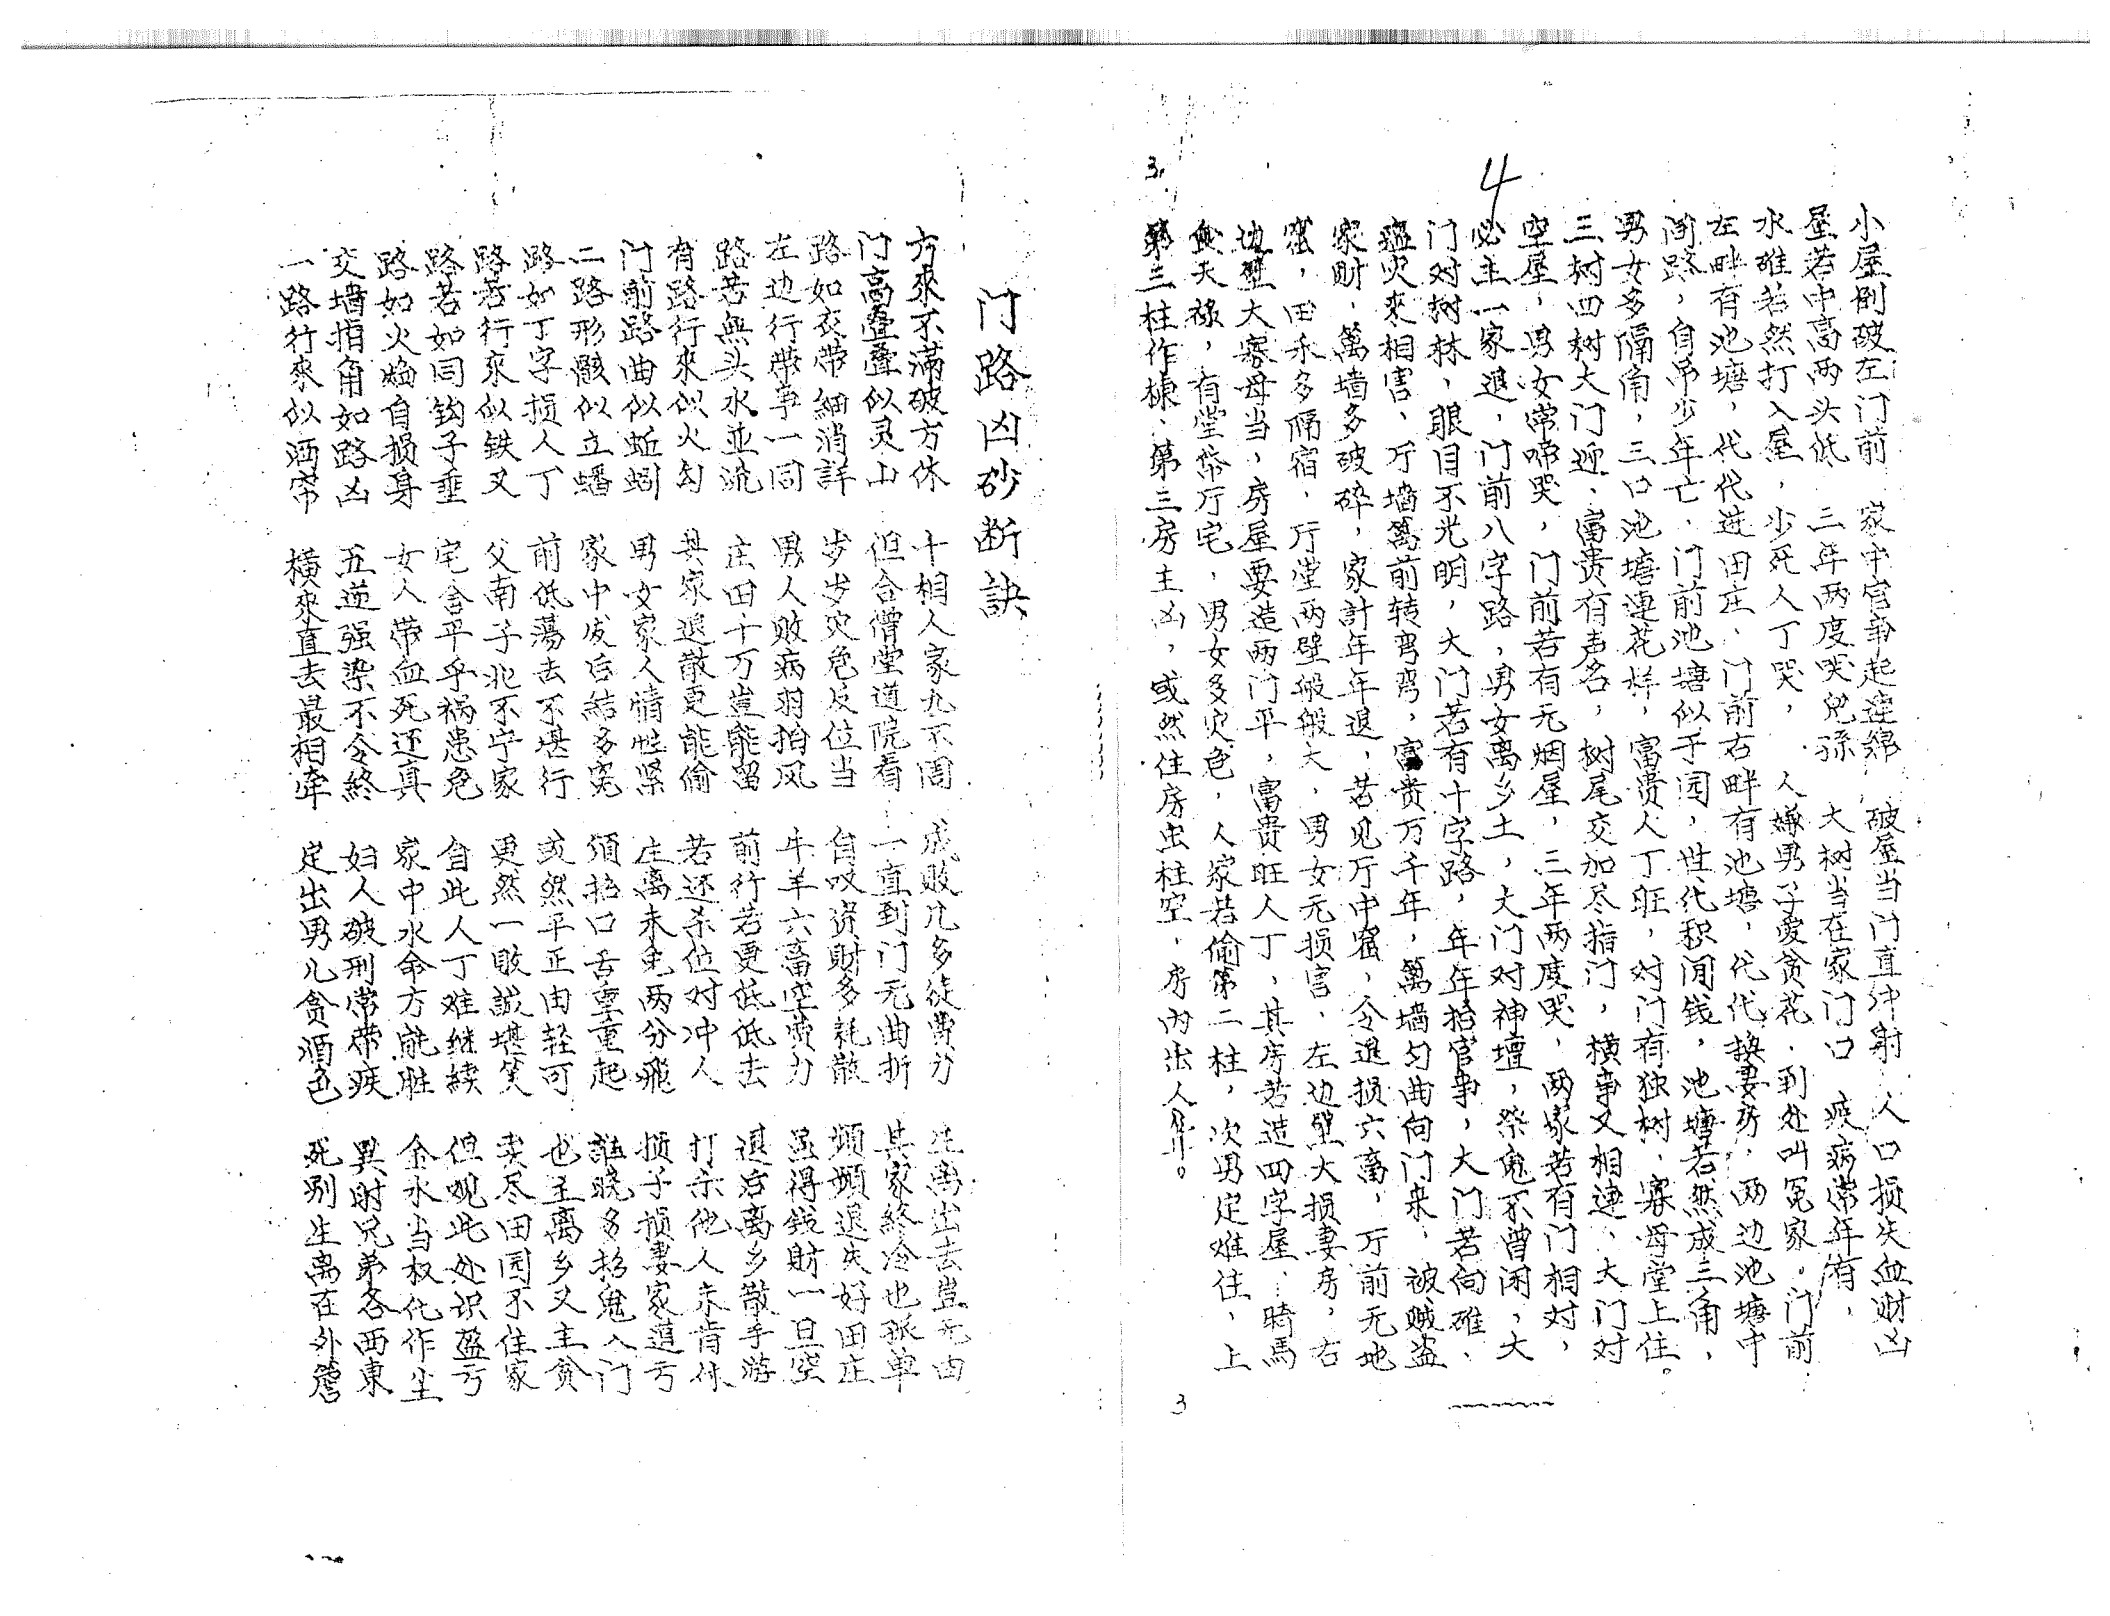 4
小屋倒破左门前 家中官事起連綿 破屋当门直冲射 人口损失血财凶
屋若中高两头低 三年两度哭兒孫 大树当在家门口 疾病常年有，
水碓若然打入屋，少死人丁哭，人嫌男子愛贪花，到处叫冤家。门前
左畔有池塘，代代进田庄，门前右畔有池塘，代代换妻房，两边池塘中
间路，自吊少年亡，门前池塘似乎园，世代积闲钱，池塘若然成三角，
男女多隔角，三口池塘連花样，富贵人丁旺，对门有独树，寡母堂上住。
三树四树大门迎，富贵有声名，树尾交加尽指门，横事又相連，大门对
空屋，男女常啼哭，门前若有无烟屋，三年两度哭，两家若有门相对，
必主一家退，门前八字路，男女离乡土，大门对神壇，祭鬼不曾闲，大
门对树林，眼目不光明，大门若有十字路，年年招官事，大门若向碓，
瘟火來相害，厅墙篱前转弯弯，富贵万千年，篱墙勾曲向门来，被贼盗
家财，篱墙多破碎，家計年年退，若见厅中窗，令退损六畜，厅前无地
窖，田禾多隔宿，厅堂两壁般般大，男女无损害，左边壁大损妻房，右
边壁大寡母当，房屋要造两门平，富贵旺人丁，其房若造四字屋，騎馬
食天禄，有堂祭厅宅，男女多灾危，人家若偷第二柱，次男定难住，上
第三柱作棟，第三房主凶，或然住房虫柱空，房内出人
3
门路凶砂断訣
方來不滿破方休 十相人家九不周 成败几多徒费力 生离出去豈无由
门高叠叠似灵山 但合僧堂道院看 一直到门无曲折 其家終冷也孤单
路如衣带細消詳 岁岁灾危反位当 自叹資財多耗散 頻頻退失好田庄
左边行带事一同 男人败病羽拍风 牛羊六畜空费力 虽得钱財一旦空
路若無头水並流 庄田十万豈能留 前行若更低低去 退后离乡散手游
有路行來似火勾 其家退散更能偷 若还杀位对冲人 打杀他人未肯休
门前路曲似蚯蚓 男女家人情性紧 生离未免两分飛 损子损妻家道亏
二路形骸似立蟠 家中成后結多寃 須招口舌重重起 誰晓多招鬼入门
路如丁字损人丁 前低蕩去不堪行 或然平正由轻可 也主离乡又主贫
路若行來似铁叉 父南子北不宁家 更然一败誠堪笑 卖尽田园不住家
路若如同鈎子垂 宅舍平乎祸患危 自此人丁难继續 但观此处识盈亏
路如火焰自损身 女人带血死还真 家中水命方能胜 金水当权化作尘
交墙指角如路凶 五逆强梁不令終 妇人破刑常带疾 異財兄弟各西東
一路行來似洒帘 横來直去最相牵 定出男儿贪酒色 死别生离在外簷